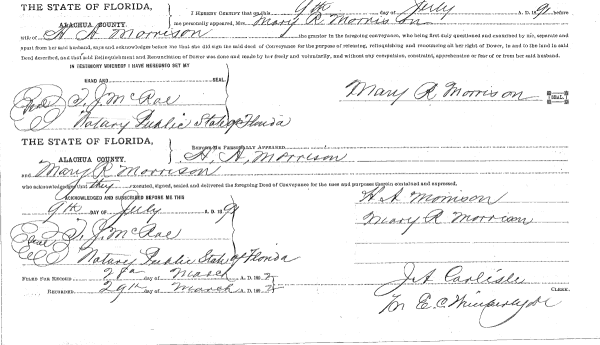 THE STATE OF FLORIDA,
ALACHUA COUNTY.
I HEREBY CERTIFY that on this 9th day of July A. D. 9 before
me personally appeared, Mrs. Mary R Morrison
wife of H A Morrison the grantor in the foregoing conveyance, who being first duly questioned and examined by me, separate and
apart from her said husband, says and acknowledges before me that she did sign the said deed of Conveyance for the purpose of releasing, relinquishing and renouncing all her right of Dower, in and to the land in said
Deed described, and that said Relinquishment and Renunciation of Dower was made by her freely and voluntarily, and without any compulsion, constraint, apprehension or fear of or from her said husband.
IN TESTIMONY WHEREOF I HAVE HEREUNTO SET MY
HAND AND SEAL
Mary R Morrison SEAL.
Seal T. J. McRae
Notary Public State of Florida
THE STATE OF FLORIDA,
ALACHUA COUNTY.
BEFORE ME PERSONALLY APPEARED H, A, Morrison
and Mary R Morrison
who acknowledged that they executed, signed, sealed and delivered the foregoing Deed of Conveyance for the uses and purposes therein contained and expressed.
ACKNOWLEDGED AND SUBSCRIBED BEFORE ME THIS
H A Morrison
9th DAY OF July A. D. 189
Mary R Morrison
Seal T. J. McRae
Notary Public State of Florida
FILED FOR RECORD day of March A. D. 189
J A Carlisle
RECORDED 29th day of March A. D. 189
CLERK.
E. C.